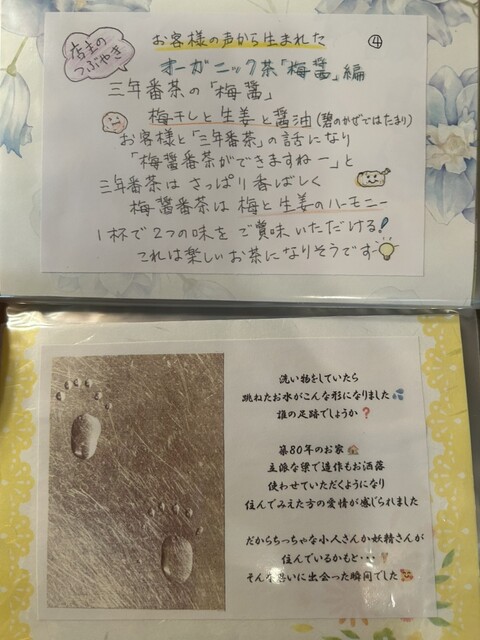 店主の
つぶやき
お客様の声から生まれた ④
オーガニック茶「梅醤」編
三年番茶の「梅醤」
梅干しと生姜と醤油(碧のかぜではたまり)
お客様と「三年番茶」の話になり
「梅醤番茶ができますねー」と
三年番茶は さっぱり香ばしく
梅醤番茶は 梅と生姜のハーモニー
1杯で2つの味をご賞味いただける!
これは楽しいお茶になりそうです
洗い物をしていたら
跳ねたお水がこんな形になりました💦
誰の足跡でしょうか❓
築80年のお家🏠
立派な梁で造作もお洒落
使わせていただくようになり
住んでみえた方の愛情が感じられました
だからちっちゃな小人さんか妖精さんが
住んでいるかもと・・・
そんな思いに出会った瞬間でした